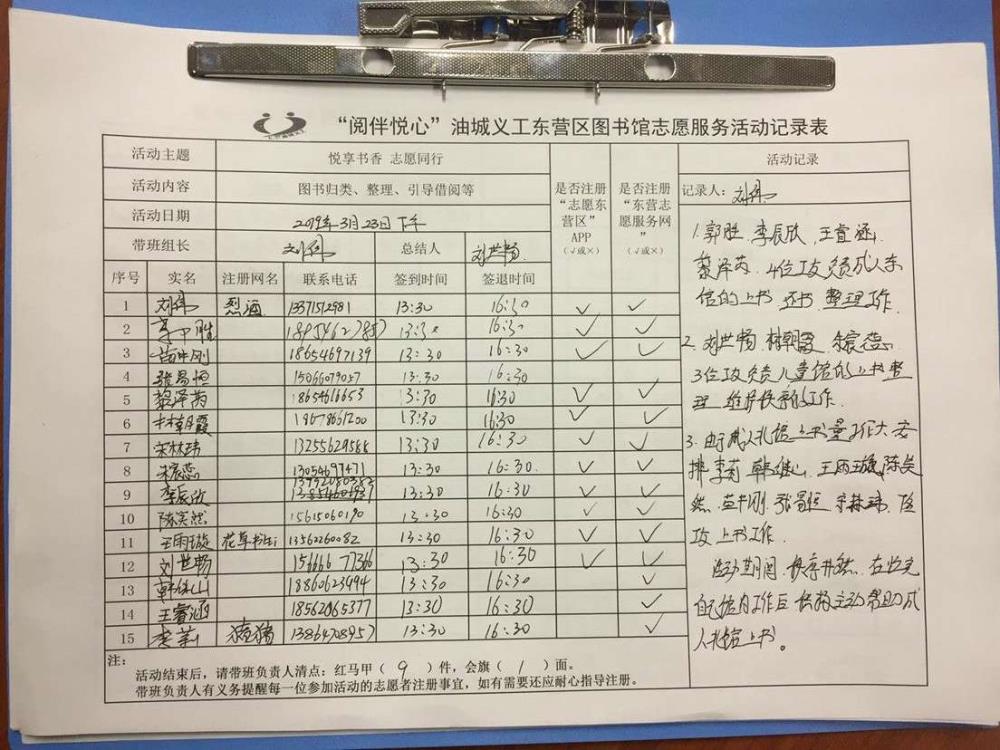 “阅伴悦心”油城义工东营区图书馆志愿服务活动记录表
活动主题 悦享书香 志愿同行 是否注册“志愿东营区”APP（√或×） 是否注册“东营志愿服务网”（√或×） 活动记录
活动内容 图书归类、整理、引导借阅等 记录人：刘伟
活动日期 2019年3月23日下午
带班组长 刘伟 总结人 刘世畅
序号 实名 注册网名 联系电话 签到时间 签退时间
1 刘伟 烈酒 13371512981 13:30 16:30 √ √
2 13:30 16:30 √ √
3 苗中刚 18654697139 13:30 16:30 √ √
4 张易恒 15066079027 13:30 16:30
5 黎泽芮 18654616653 13:30 16:30 √ √
6 林朝霞 18578661200 13:30 16:30 √ √
7 宋林玮 13255629588 13:30 16:30 √ √
8 宋宸蕊 13054697471 13:30 16:30 √ √
9 李辰欣 13:30 16:30 √ √
10 陈昊然 15615060190 13:30 16:30 √ √
11 王雨璇 13562260082 13:30 16:30 √ √
12 刘世畅 156666 77366 13:30 16:30 √ √
13 韩雄山 18860623494 13:30 16:30 √
14 王睿涵 18562065377 13:30 16:30 √
15 李莉 猪猪 13864708957 13:30 16:30 √
1.郭胜、李辰欣、王睿涵、
黎泽芮、4位义工负责成人东
馆的上书、还书、整理工作。
2.刘世畅 林朝霞 宋宸蕊
3位义工负责儿童馆的上书整
理、维护秩序的工作.
3.由于成人北馆上书量工作大，安
排李莉 韩雄山、王雨璇、陈昊
然、苗中刚、张易恒 宋林玮、
上书工作。
活动期间，秩序井然、在忙完
自己馆内工作后 积极主动帮助成
人北馆上书。
注：
活动结束后，请带班负责人清点：红马甲（ 9 ）件，会旗（ 1 ）面。
带班负责人有义务提醒每一位参加活动的志愿者注册事宜，如有需要还应耐心指导注册。